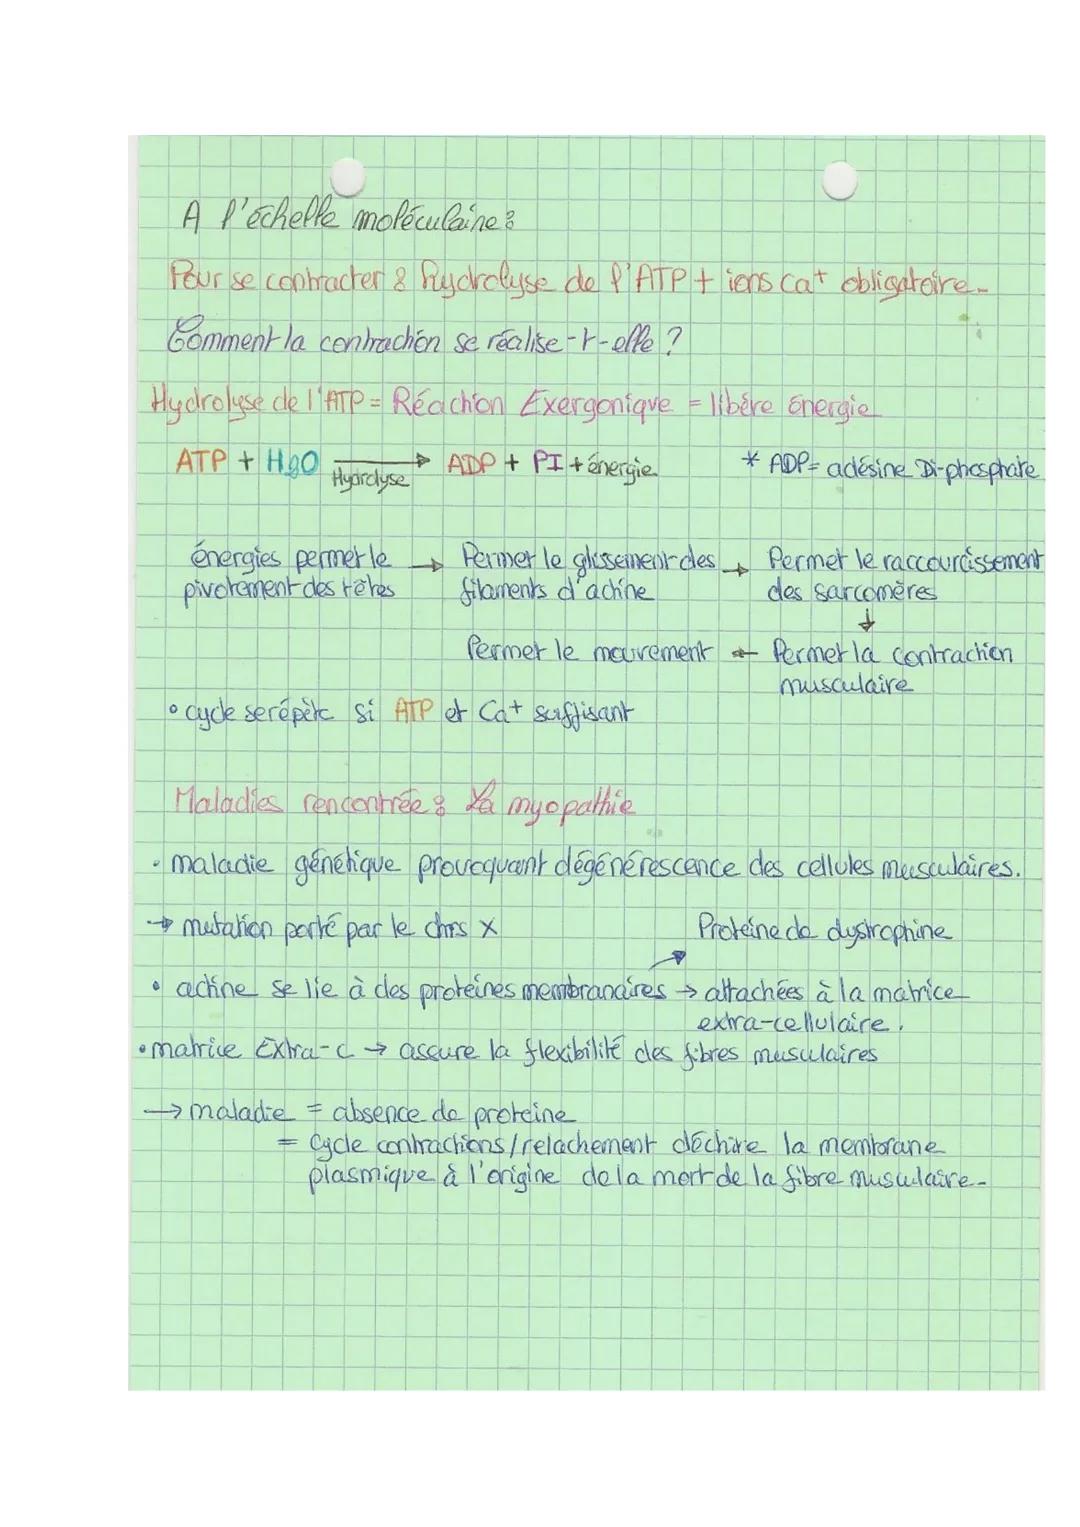 A l'échelle moléculaire :
Pour se contracter : hydrolyse de l'ATP + ions Ca+ obligatoire.
Comment la contraction se réalise-t-elle ?
Hydrolyse de l'ATP = Réaction Exergonique = libère énergie
ATP + H2O → ADP + PI + énergie * ADP = adésine Di-phosphate
Hydrolyse
énergies permet le → Permet le glissement des → Permet le raccourcissement
pivotement des têtes filaments d'actine des sarcomères
↓
Permet le mouvement ← Permet la contraction
musculaire
• cycle se répète si ATP et Ca+ suffisant
Maladies rencontrée : La myopathie
• maladie génétique provoquant dégénérescence des cellules musculaires.
→ mutation porté par le chrs X Protéine de dystrophine
• actine se lie à des protéines membranaires → attachées à la matrice
extra-cellulaire.
• matrice Extra-c → assure la flexibilité des fibres musulaires
→ maladie = absence de proteine
= Cycle contractions/relachement déchire la membrane
plasmique à l'origine de la mort de la fibre musulaire.